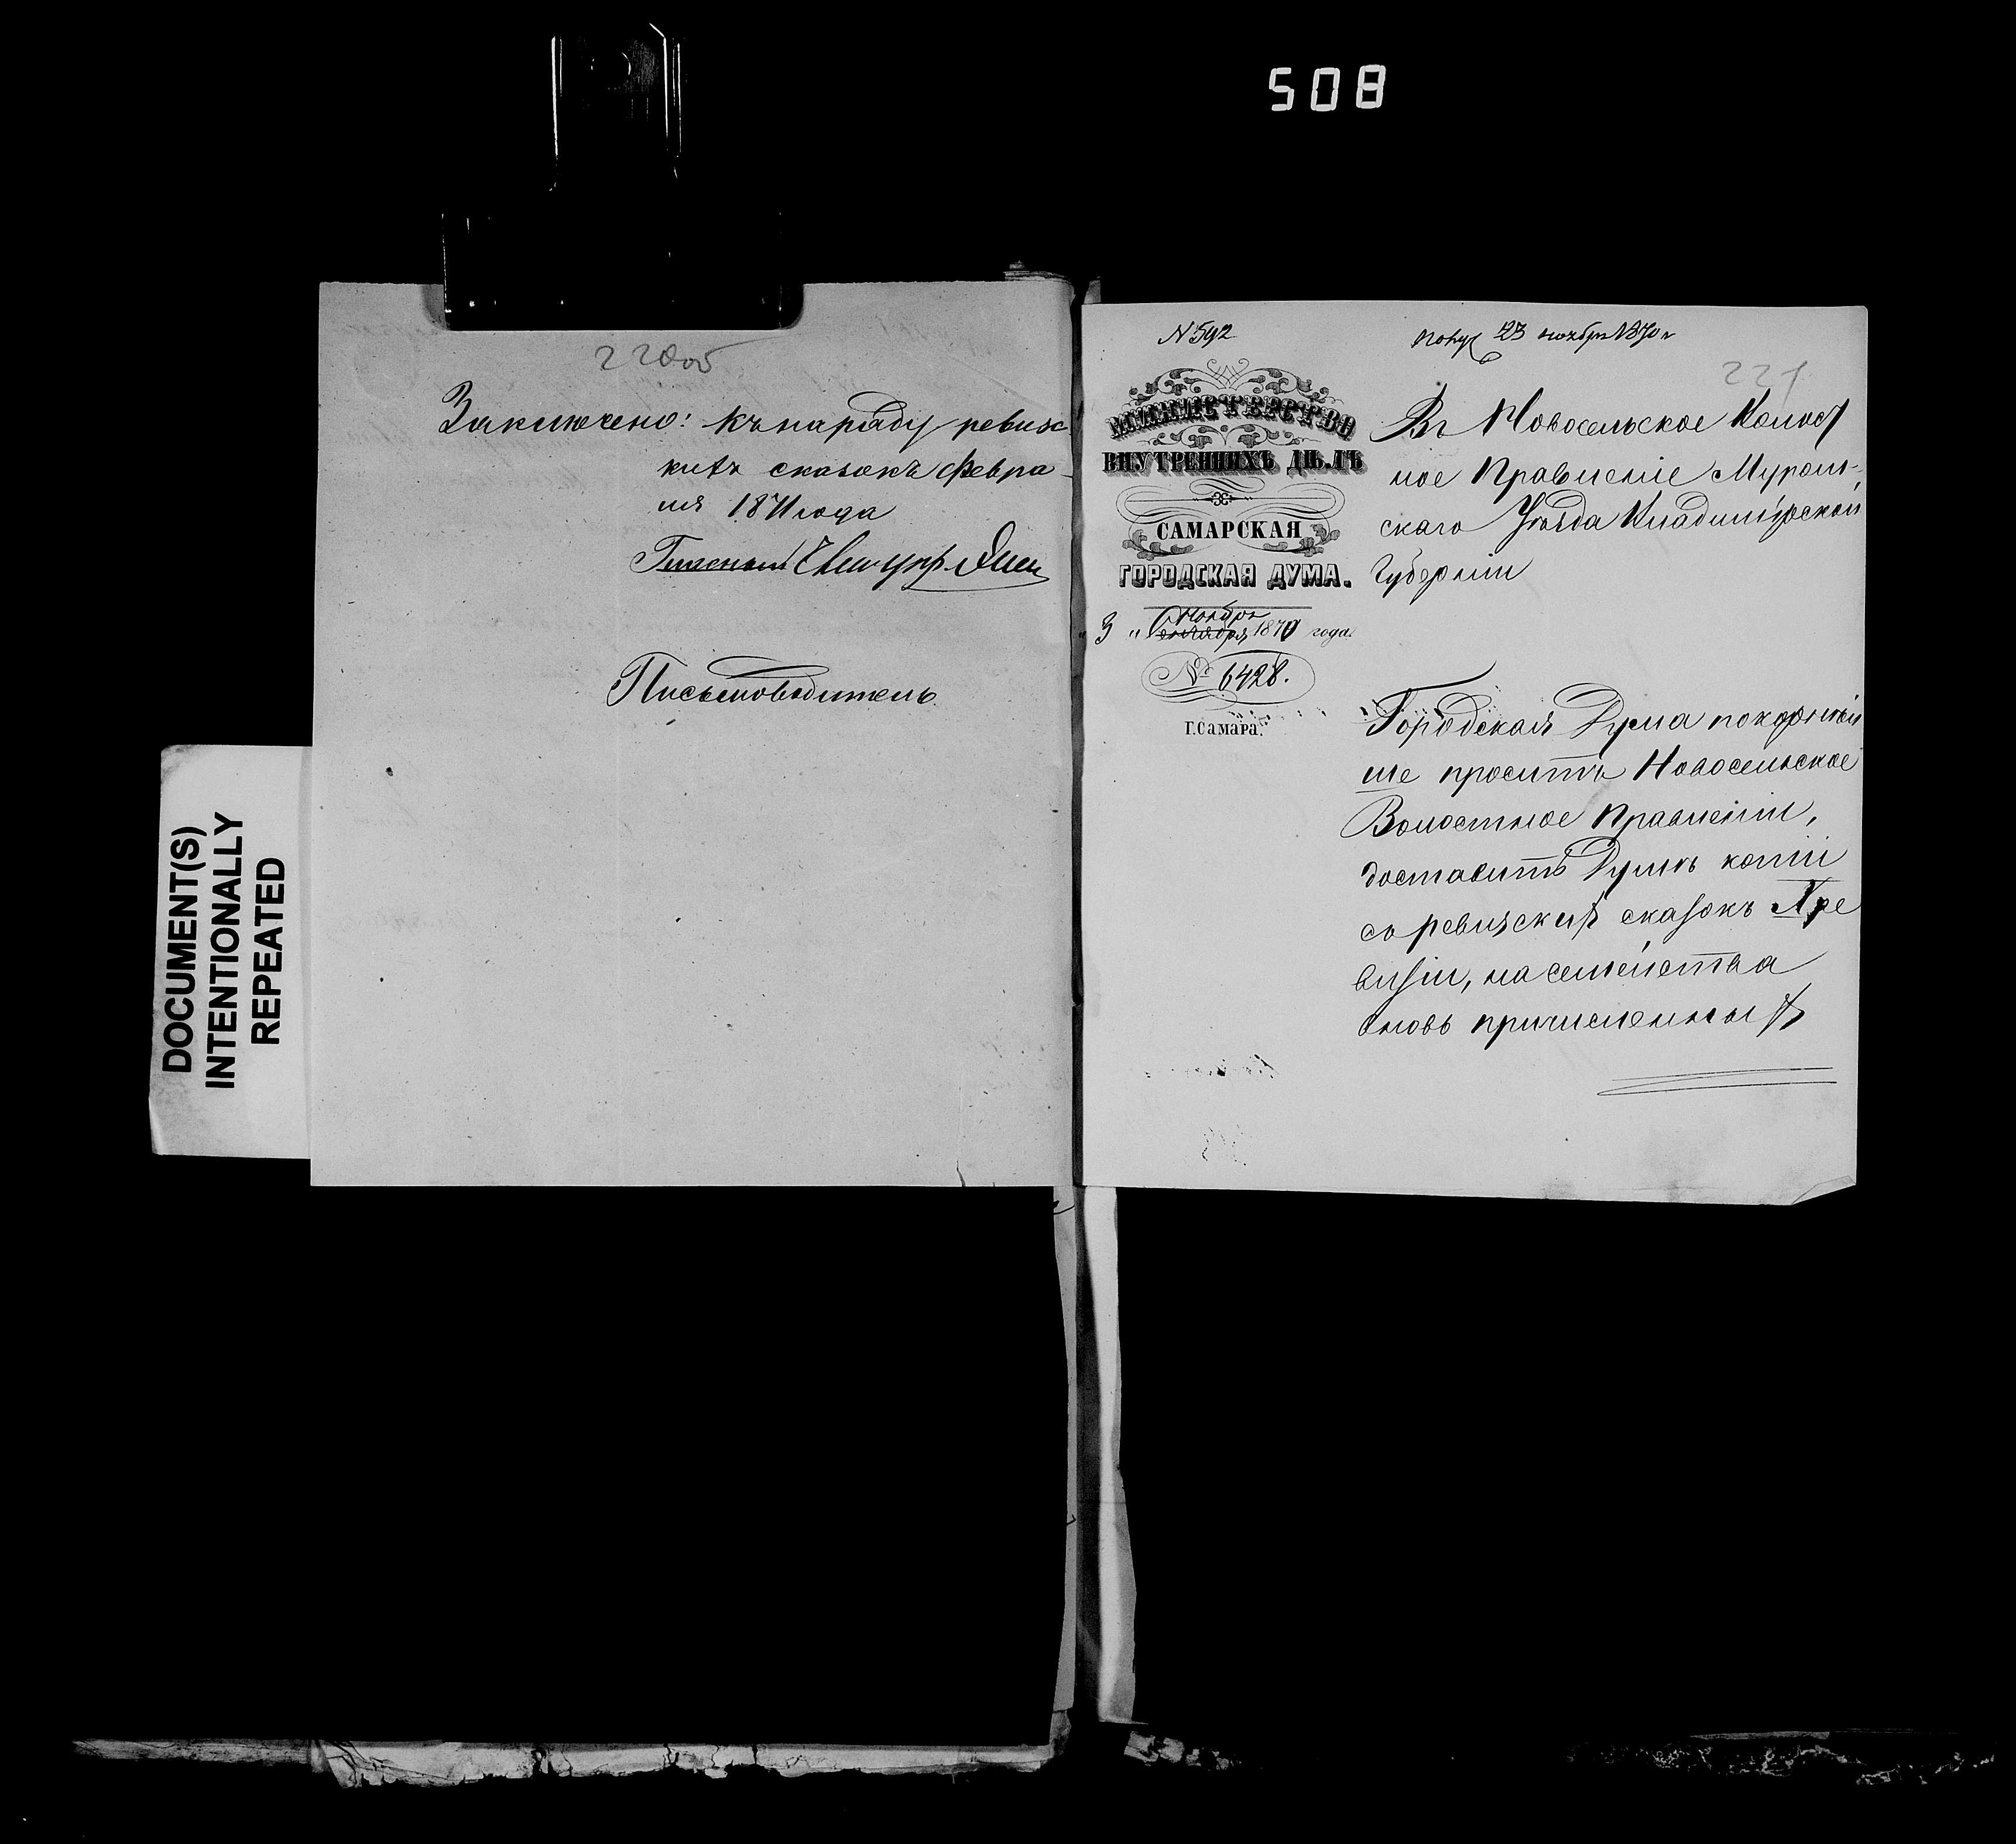 508
DOCUMENT(S)
INTENTIONALLY
REPEATED
220 об
Заключено: къ наряду ревизс
кихъ сказокъ Февра-
ля 1871 года
Письмоводитель
N 592
Получ 23 ноября 1870 г
221
МИНИСТЕРСТВО
ВНУТРЕННИХЪ ДѢЛЪ
САМАРСКАЯ
ГОРОДСКАЯ ДУМА.
"3" Ноября 1870 года.
№ 6428.
Г. Самара.
Въ Новосельское Волост
ное Правленіе Муром-
скаго Уѣзда Владимірской
Губерніи
Городская Дума покорнѣй
ше проситъ Новосельское
Волостное Правленіи,
доставить Думѣ копіи
съ ревизскихъ сказокъ X ре
визіи, на семейства
вновь причисленныхъ